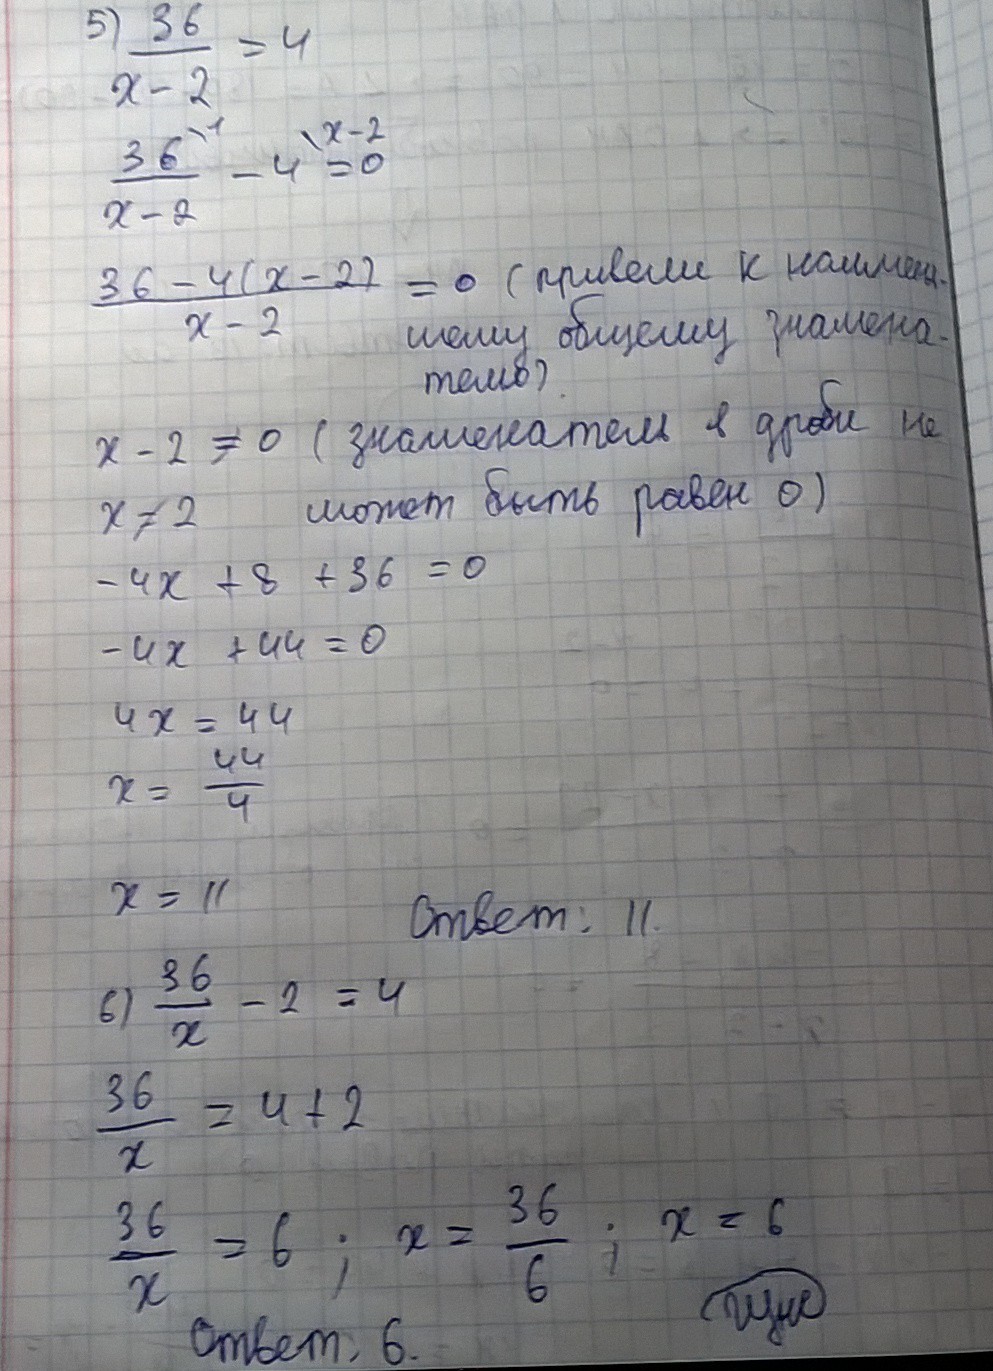 5) 36/(x-2) = 4
36\1/(x-2) - 4\x-2 = 0
(36-4(x-2))/(x-2) = 0 (привели к наимень-
шему общему знамена-
телю).
x-2 ≠ 0 (знаменатель в дроби не
x ≠ 2 может быть равен 0)
-4x +8 +36 = 0
-4x +44 = 0
4x = 44
x = 44/4
x = 11 Ответ: 11.
6) 36/x - 2 = 4
36/x = 4+2
36/x = 6 ; x = 36/6 ; x = 6
Ответ: 6.